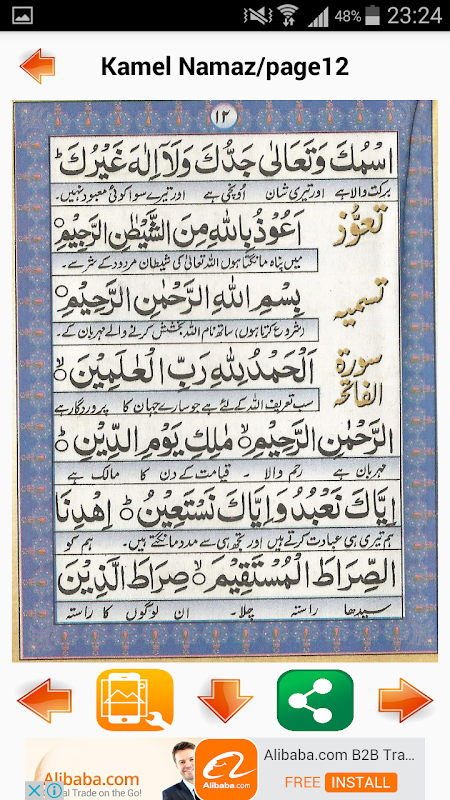 48% 23:24
Kamel Namaz/page12
١٢
اسْمُكَ وَتَعَالٰی جَدُّكَ وَلَآ اِلٰهَ غَيْرُكَ ؕ
برکت والا ہے اور تیری شان اُونچی ہے اور تیرے سوا کوئی معبود نہیں۔
تعوُّز
اَعُوْذُ بِاللّٰهِ مِنَ الشَّيْطٰنِ الرَّجِيْمِ ○
میں پناہ مانگتا ہوں اللہ تعالیٰ کی شیطان مردود کے شر سے۔
تسمیہ
بِسْمِ اللّٰهِ الرَّحْمٰنِ الرَّحِيْمِ ○
(شروع کرتا ہوں) ساتھ نام اللہ بخشش کرنے والے مہربان کے۔
سورۃ
الفاتحہ
اَلْحَمْدُ لِلّٰهِ رَبِّ الْعٰلَمِيْنَ ○ۙ
سب تعریف اللہ کے لئے ہے جو سارے جہان کا پروردگار ہے
الرَّحْمٰنِ الرَّحِيْمِ ○ۙ مٰلِكِ يَوْمِ الدِّيْنِ ○ؕ
مہربان ہے رحم والا ۔ قیامت کے دن کا مالک ہے
اِيَّاكَ نَعْبُدُ وَاِيَّاكَ نَسْتَعِيْنُ ○ؕ اِهْدِنَا
ہم تیری ہی عبادت کرتے ہیں اور تجھ ہی سے مدد مانگتے ہیں۔ ہم کو
الصِّرَاطَ الْمُسْتَقِيْمَ ○ۙ صِرَاطَ الَّذِيْنَ
سیدھا راستہ چلا۔ ان لوگوں کا راستہ
Alibaba.com
al Trade on the Go!
Alibaba.com
Alibaba.com B2B Tra...
FREE INSTALL